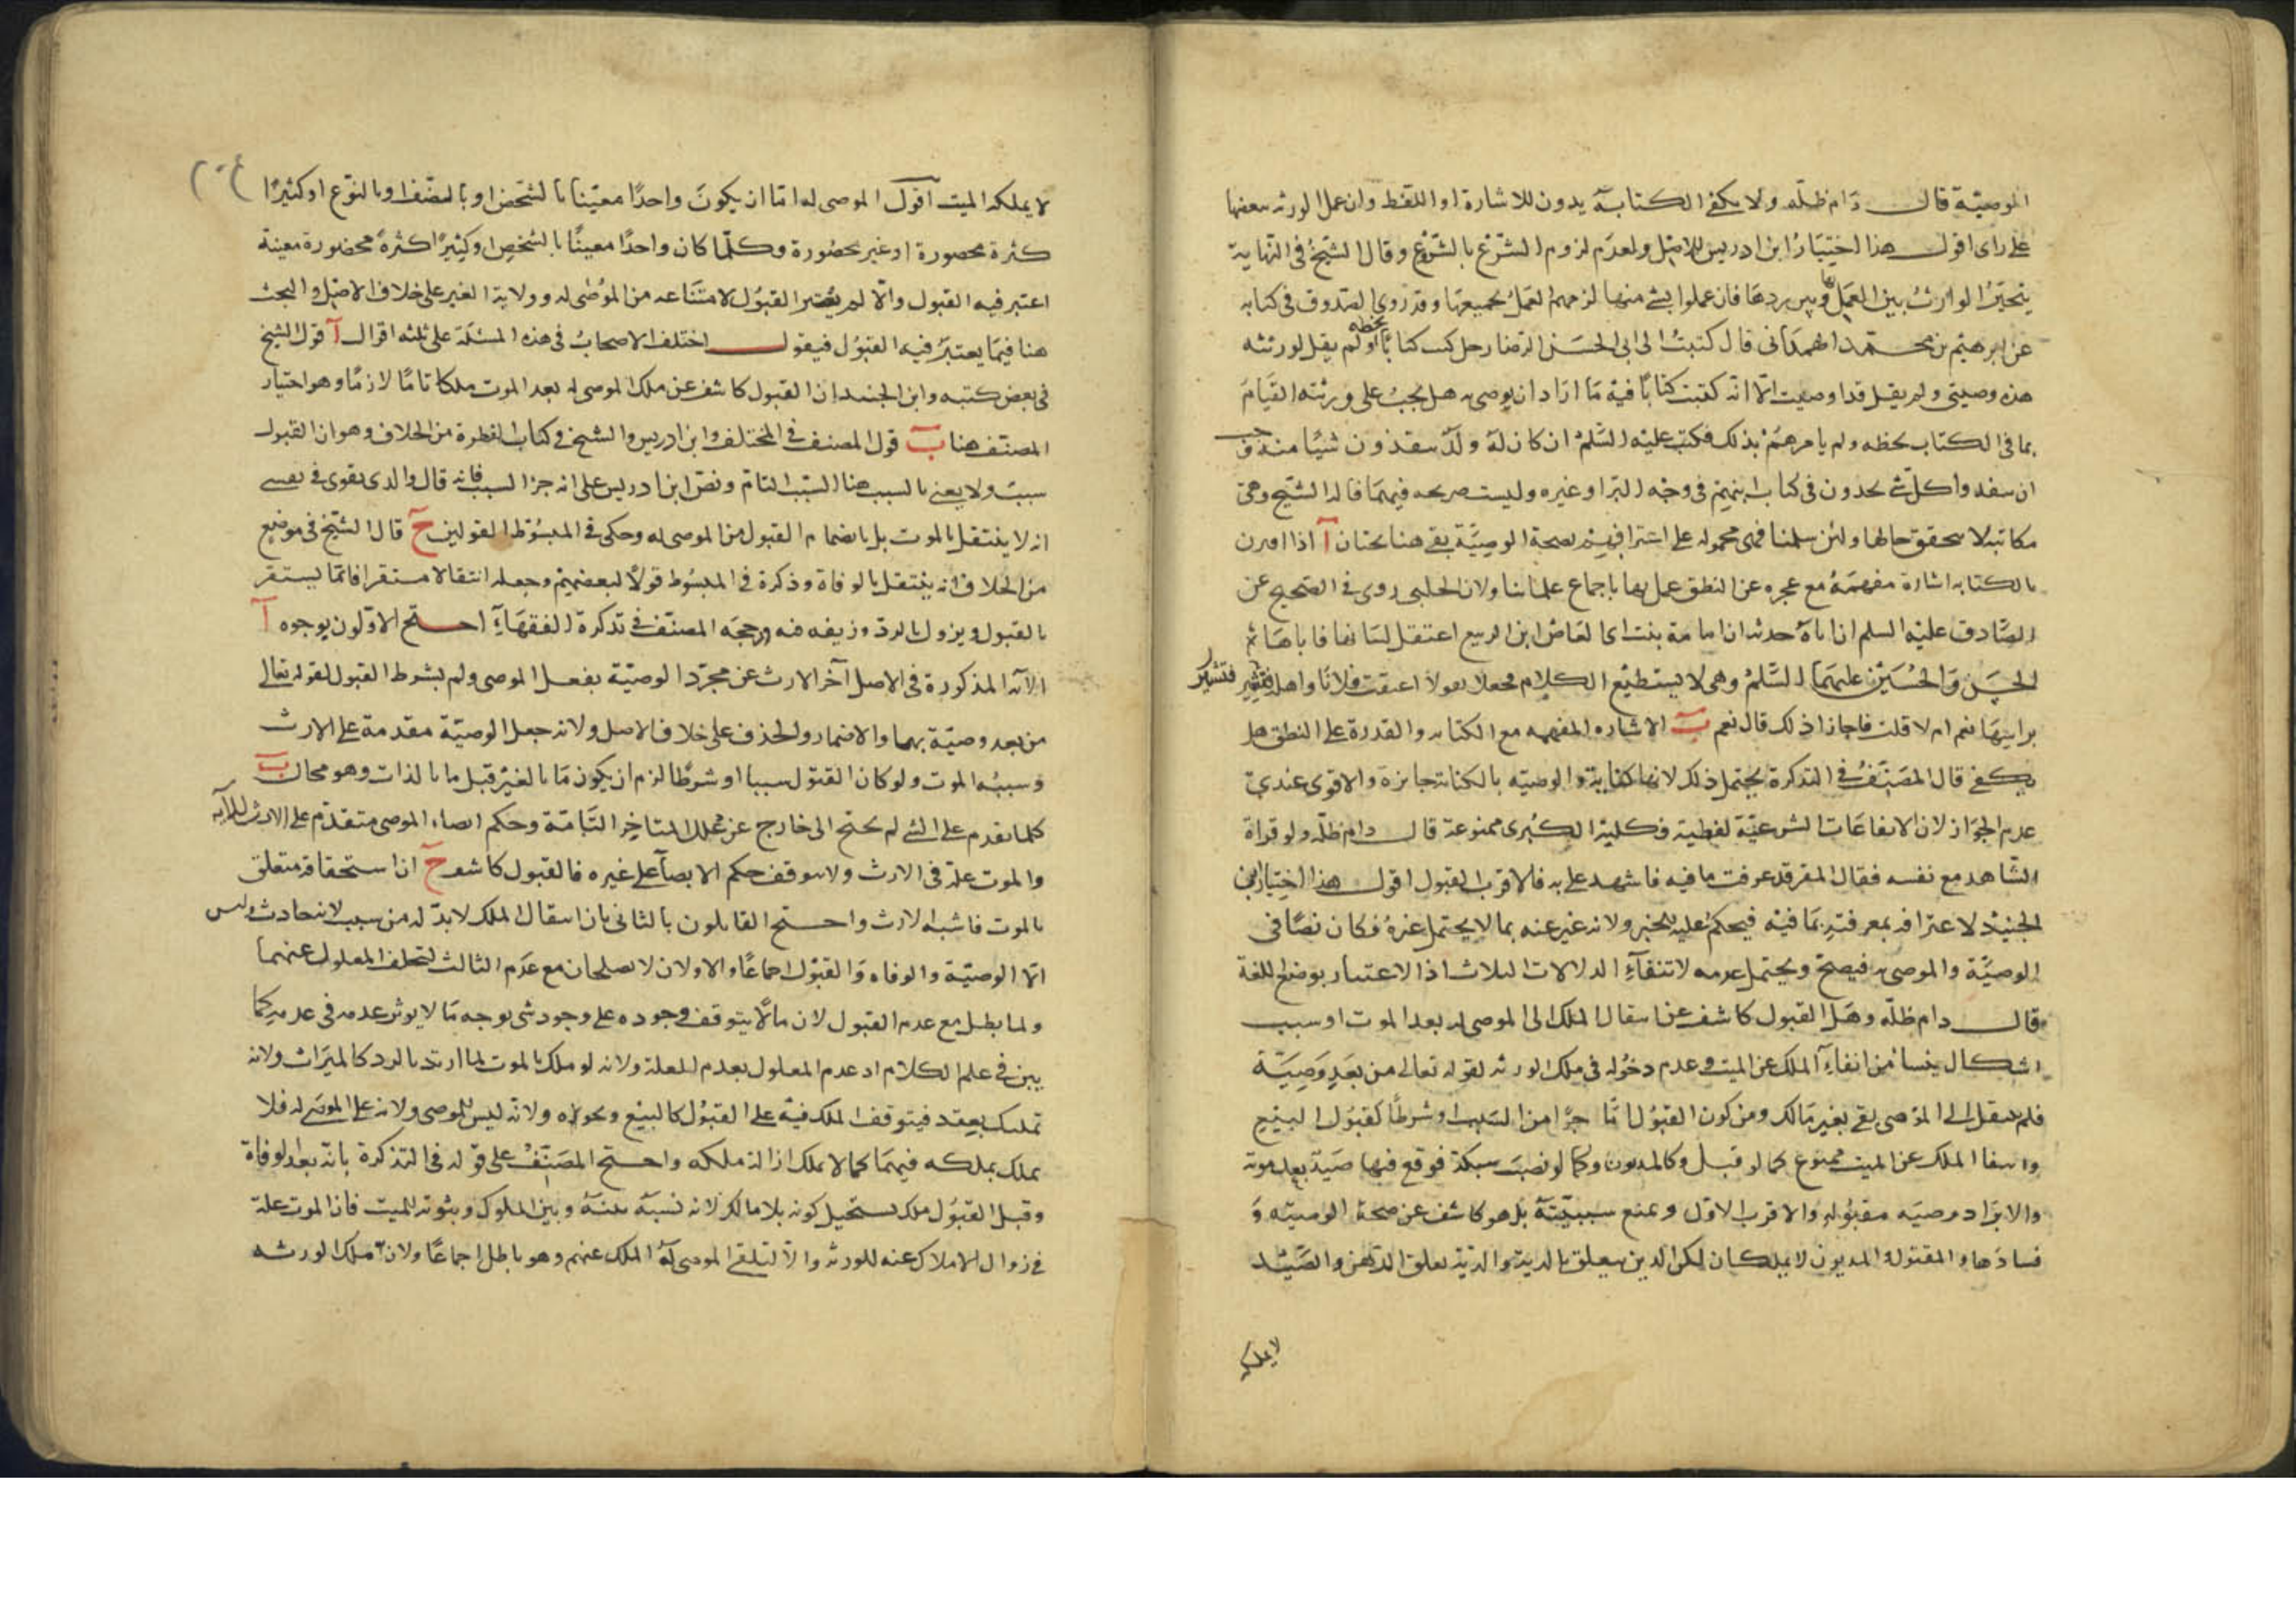 الوصيّة قال دام ظلّه ولا يكفى الكتابة بدون الاشارة او اللفظ وان عمل الورثه ببعضها
على راى اقول هذا اختيار ابن ادريس للاصل ولعدم لزوم الشرع بالشروع وقال الشيخ فى النهاية
يتخير الوارث بين العمل بها وبين ردها فان عملوا بشئ منها لزمهم العمل بجميعها وقد روى الصدوق فى كتابه
عن ابرهيم بن محمد الهمدانى قال كتبت الى ابى الحسن الرضا رجل كتب كتابا بخطه ولم يقل لورثته
هذه وصيتى ولم يقل قد اوصيت الا انه كتبت كتابا فيه ما اراد ان يوصى به هل يجب على ورثته القيام
بما فى الكتاب بخطه ولم يامرهم بذلك فكتب عليه السلم ان كان له ولد ينفذون شيئا منه وجب
ان ينفذوا كل شئ يجدون فى كتاب ابيهم فى وجه البر او غيره وليست صريحه فيهما قاله الشيخ وهى
مكاتبه لا يتحقق حالها ولئن سلمنا فهى محموله على اعترافهم بصحة الوصية بقى هنا بحثان آ اذا اقترن
بالكتابه اشارة مفهمة مع عجزه عن النطق عمل بها باجماع علمائنا ولان الحلبى روى فى الصحيح عن
الصادق عليه السلم ان اباه حدثه ان امامة بنت ابى العاص ابن الربيع اعتقل لسانها فاتاها
الحسن والحسين عليهما السلم وهى لا يستطيع الكلام فجعلا يقولا اعتقت فلانا واهله فتشير
براسها نعم ام لا قلت فاجازا ذلك قال نعم ب الاشاره المفهمه مع الكتابه والقدرة على النطق هل
يكفى قال المصنف فى التذكرة يحتمل ذلك لانها كفاية والوصيه بالكتابة جايزة والاقوى عندى
عدم الجواز لان الايقاعات الشرعية لفظية وكلية الكبرى ممنوعة قال دام ظله ولو قراه
الشاهد مع نفسه فقال المقر قد عرفت ما فيه فاشهد على به فالاقرب القبول اقول هذا اختيار ابن
الجنيد لاعترافه بمعرفته بما فيه فيحكم عليه للخبر ولانه عبر عنه بما لا يحتمل غيره فكان نصا فى
الوصية والموصى به فيصح ويحتمل عدمه لانتفاء الدلالات الثلاث اذ الاعتبار بوضع اللغة
قال دام ظله وهل القبول كاشف عن انتقال الملك الى الموصى له بعد الموت او سبب
اشكال ينشأ من انتفاء الملك عن الميت وعدم دخوله فى ملك الورثه لقوله تعالى من بعد وصية
فلم ينتقل الى الموصى بقى بغير مالك ومن كون القبول اما جزءا من السبب او شرطا كقبول البيع
وانتفا الملك عن الميت ممنوع كما لو قبل وكالمديون وكما لو نصب شبكة فوقع فيها صيد بعد موته
والايراد وصيه مقبوله والاقرب الاول ويمنع سببيته بل هو كاشف عن صحة الوصيه و
فسادها والمقتول والمديون لا يملكان لكن الدين يتعلق بالدية والدية تعلق الرهن والصيد
لا يملكه
لا يملكه الميت اقول الموصى له اما ان يكون واحدا معينا بالشخص او بالصنف او بالنوع او كثيرا
كثرة محصورة او غير محصورة وكلما كان واحدا معينا بالشخص او كثيرا كثرة محصورة معينة
اعتبر فيه القبول والا لم يعتبر القبول لامتناعه من الموصى له وولاية الغير على خلاف الاصل والبحث
هنا فيما يعتبر فيه القبول فيقول اختلف الاصحاب فى هذه المسئلة على ثلثه اقوال آ قول الشيخ
فى بعض كتبه وابن الجنيد ان القبول كاشف عن ملك الموصى له بعد الموت ملكا تاما لازما وهو اختيار
المصنف هنا ب قول المصنف فى المختلف وابن ادريس والشيخ فى كتاب الفطرة من الخلاف وهو ان القبول
سبب ولا يعنى بالسبب هنا السبب التام ونص ابن ادريس على انه جزا السبب فانه قال والذى يقوى فى نفسى
انه لا ينتقل بالموت بل بانضمام القبول من الموصى له وحكى فى المبسوط القولين ح قال الشيخ فى موضع
من الخلاف انه ينتقل بالوفاة وذكره فى المبسوط قولا لبعضهم وجعله انتقالا مستقرا فانما يستقر
بالقبول ويزول بالرد وزيفه فيه ورجحه المصنف فى تذكرة الفقهاء احتج الاولون بوجوه آ
الآيه المذكورة فى الاصل آخر الارث عن مجرد الوصية بفعل الموصى ولم يشرط القبول لقوله تعالى
من بعد وصية بهما والاضمار والحذف على خلاف الاصل ولانه جعل الوصية مقدمة على الارث
وسببه الموت ولو كان القبول سببا او شرطا لزم ان يكون ما بالغير قبل ما بالذات وهو محال ب
كلما تقدم على الشئ لم يحتج الى خارج عن محله المتاخر التامة وحكم ايصاء الموصى متقدم على الارث للآيه
والموت علة فى الارث ولا يتوقف حكم الايصاء على غيره فالقبول كاشف ح ان استحقاقه متعلق
بالموت فاشبه الارث واحتج القايلون بالثانى بان انتقال الملك لابد له من سبب لانه حادث وليس
الا الوصية والوفاه والقبول اجماعا والاولان لا يصلحان مع عدم الثالث لتخلف المعلول عنهما
ولما بطل مع عدم القبول لان مالا يتوقف وجوده على وجود شى بوجه ما لا يوثر عدمه فى عدمه كما
يبين فى علم الكلام اذ عدم المعلول بعدم العلة ولانه لو ملك بالموت لما ارتد بالرد كالميراث ولانه
تمليك بعقد فيتوقف الملك فيه على القبول كالبيع ونحوه ولانه ليس للموصى ولاية على الموصى له فلا
يملك بملكه فيهما كما لا يملك ازالة ملكه واحتج المصنف على قوله فى التذكرة بانه بعد الوفاة
وقبل القبول ملك يستحيل كونه بلا مالك لانه نسبة بينه وبين المملوك وثبوته للميت فان الموت علة
فى زوال الاملاك عنه للورثه والا لتلقى الموصى له الملك عنهم وهو باطل اجماعا ولانه ملك الورثه